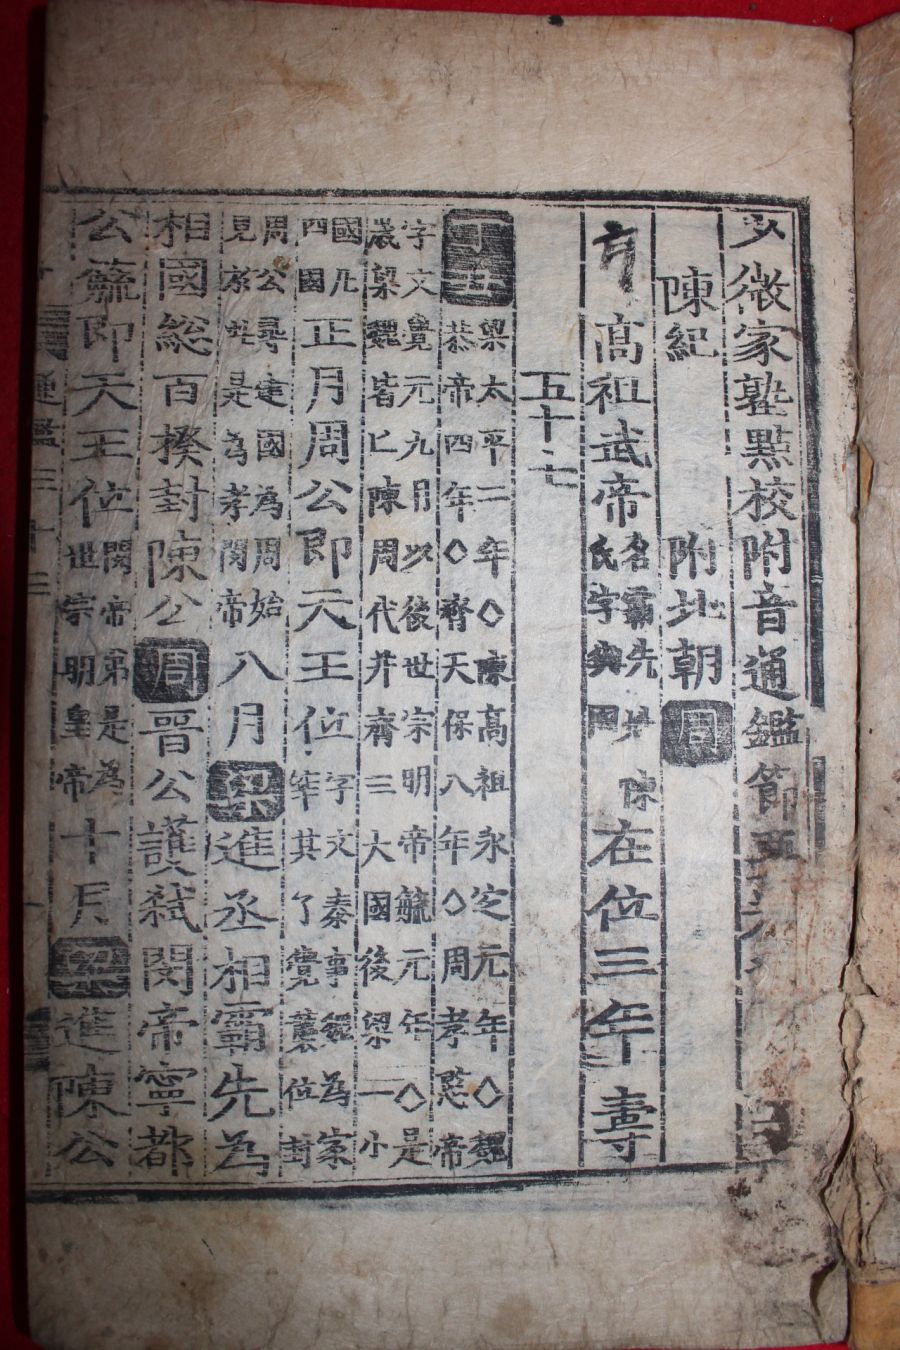 少微家塾點校附音通鑑節要
陳紀 附北朝 周
高祖武帝 名霸先姓陳
氏字興國 在位三年壽
五十七
丁丑 梁太平二年◇陳高祖永定元年◇魏
恭帝四年◇齊天保八年◇周孝愍帝
字文覺元九月以後世宗明帝毓元年◇是
歲梁魏皆亡陳周代并齊三大國後梁一小
國凡
四國 正月周公即天王位 字文泰事魏為冢
宰其子覺襲位封
周公尋建國為周始
見於此是為孝閔帝 八月梁進丞相霸先為
相國總百揆封陳公周晉公護弑閔帝寧都
公毓即天王位 閔帝弟是為
世宗明皇帝 十月梁進陳公
通鑑三十三